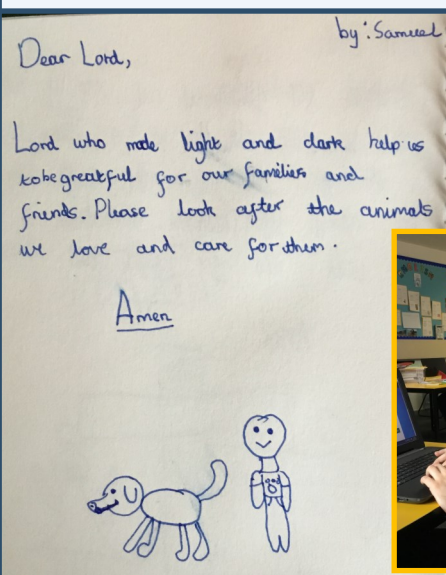 by: Samuel
Dear Lord,
Lord who made light and dark help us
to be greatful for our families and
friends. Please look after the animals
we love and care for them.
Amen